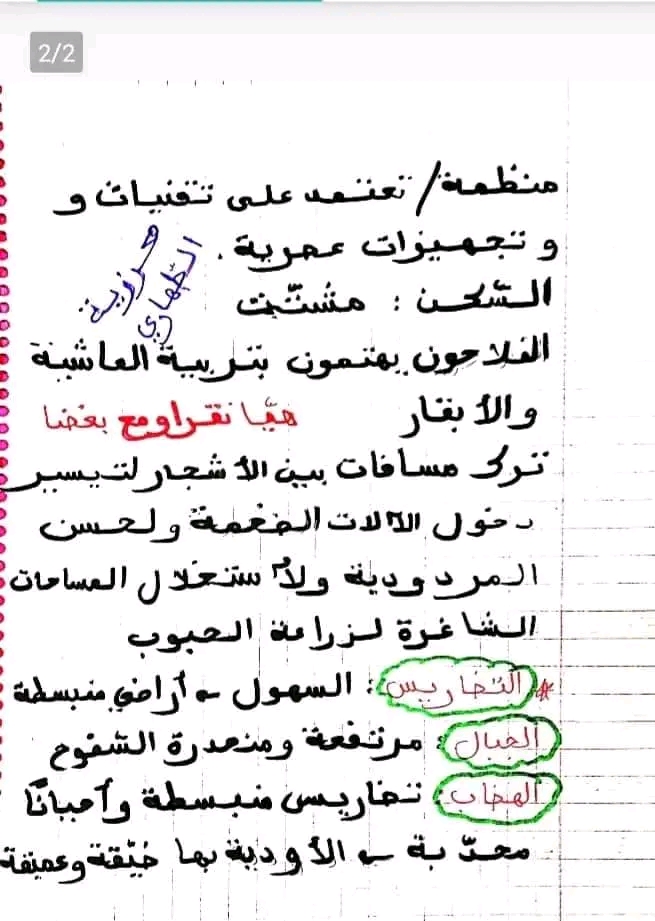 2/2
منظمة/ تعتمد على تقنيات و
و تجهيزات عصرية .
السّكن : مشتّت
الفلاحون يهتمون بتربية الماشية
والأبقار
هيّا نقراو مع بعضنا
ترك مسافات بين الأشجار لتيسير
دخول الآلات الضخمة ولحسن
المردودية ولاستغلال المساحات
الشاغرة لزراعة الحبوب
* التضاريس : السهول ← أراضي منبسطة
الجبال : مرتفعة ومنحدرة السّفوح
الهضاب : تضاريس منبسطة وأحيانًا
محدّبة ← الأودية بها ضيّقة وعميقة